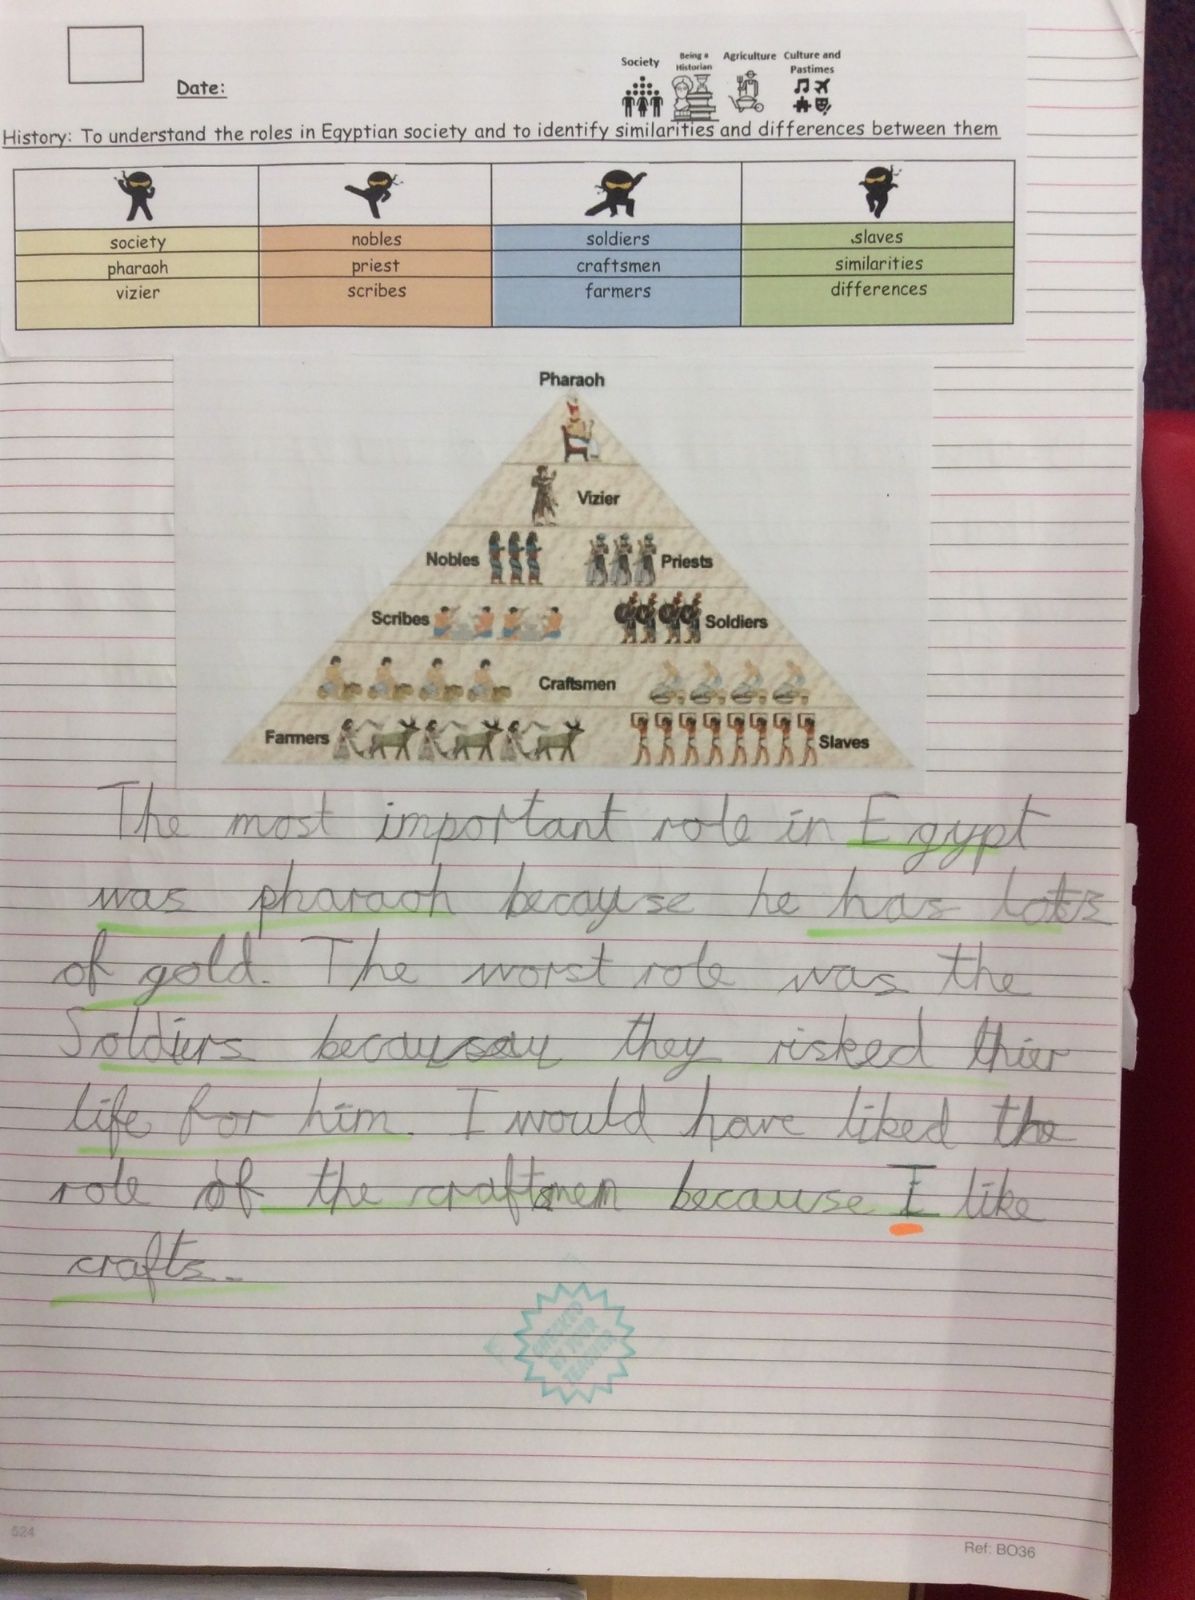 Society
Being a
Historian
Agriculture
Culture and
Pastimes
Date:
History: To understand the roles in Egyptian society and to identify similarities and differences between them
society nobles soldiers slaves
pharaoh priest craftsmen similarities
vizier scribes farmers differences
Pharaoh
Vizier
Nobles Priests
Scribes Soldiers
Craftsmen
Farmers Slaves
The most important role in Egypt
was pharaoh because he has lots
of gold. The worst role was the
Soldiers they risked thier
life for him. I would have liked the
role of the craftsmen because I like
crafts.
CHECKED
BY YOUR
TEACHER
524
Ref: BO36